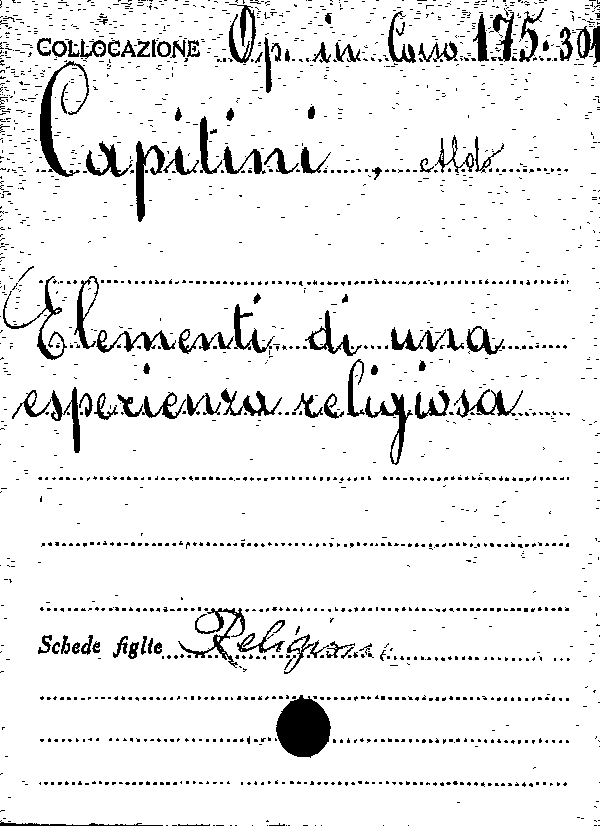 COLLOCAZIONE Op. in Corso 175.301
Capitini, Aldo
Elementi di una
esperienza religiosa
Schede figlie Religione